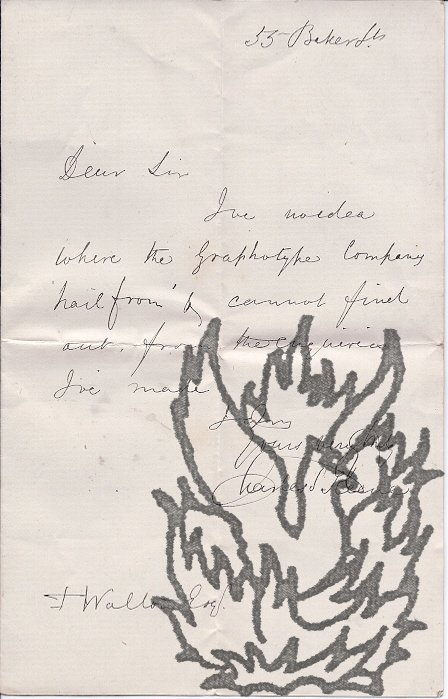 55 Baker St.
Dear Sir
I've no idea
where the Graphotype Company
hail from & cannot find
out. from the enquiries
I've made
I am
yours very truly
F Walton Esq.